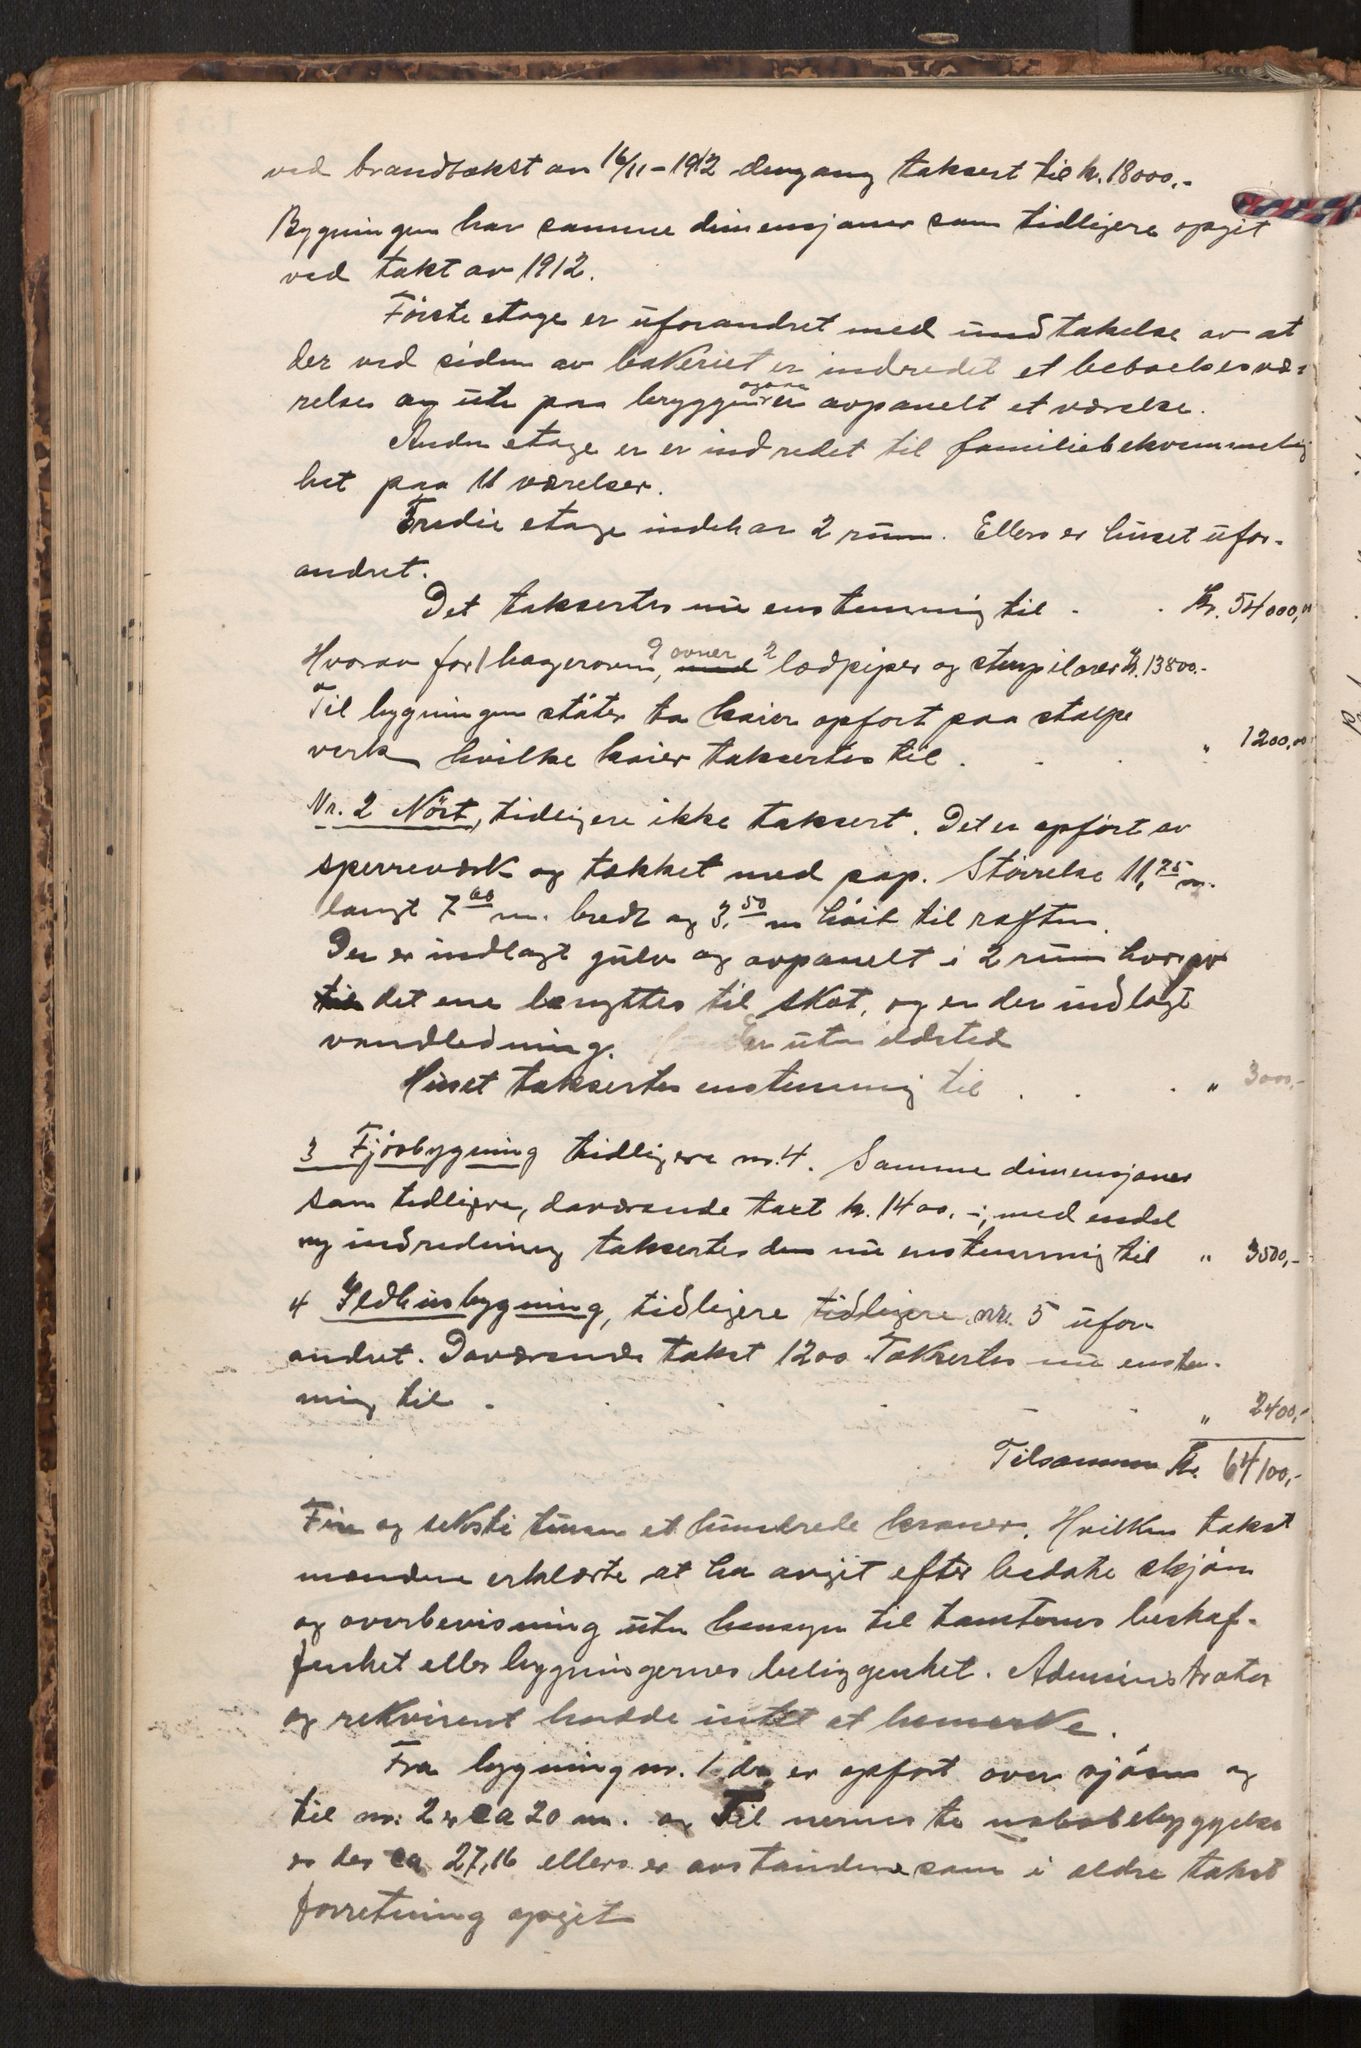 ved brandtakst av 16/11-1912 dengang taksert til kr. 18000,-
Bygningen har samme dimensjoner som tidligere opgit
ved takt av 1912.
Første etage er uforandret med undtakelse av at
der ved siden av bakeriet er indredet et beboelsesvæ-
relse og ute paa bryggen er ogsaa avpanelt et værelse.
Anden etage er er indredet til familiebekvemmelig
het paa 11 værelser.
Tredie etage indehar 2 rum. Ellers er huset ufor-
andret.
Det taksertes nu enstemmig til . . Kr. 54000,00
Hvorav for 1 bagerovn, 9 ovner med 2 lodpiper og stenpilarer Kr. 13800.-
Til bygningen støter to kaier opført paa stolpe
verk hvilke kaier taksertes til . . . " 1200,00
Nr. 2 Nöst, tidligere ikke taksert. Det er opført av
sperreværk og tækket med pap. Størrelse 11,75 m.
langt 7.00 m. bredt og 3.50 m høit til raften.
Der er indlagt gulv og avpanelt i 2 rum hvorav
til det ene benyttes til skot, og er der indlagt
vandledning. er uten ildsted
Huset taksertes enstemmig til . . . " 3000,-
3 Fjøsbygning tidligere nr. 4. Samme dimensjoner
som tidligere, daværende taxt kr. 1400.-; med endel
ny indredning taksertes den nu enstemmig til " 3500,-
4 Ildhusbygning, tidligere tidligere nr. 5 ufor-
andret. Daværende takst 1200 Taksertes nu enstem-
mig til . . . . . " 2400,-
Tilsammen Kr. 64100,-
Fire og seksti tusen et hundrede kroner. Hvilken takst
mændene erklærte at ha avgit efter bedste skjøn
og overbevisning uten hensyn til tomtenes beskaf-
fenhet eller bygningernes beliggenhet. Administrator
og rekvirent hadde intet at bemerke.
Fra bygning nr. 1 der er opført over sjøen og
til nr. 2 er ca 20 m. og Til nermeste nabobebyggelse
er der ca 27,16 ellers er avstandene som i ældre takst
forretning opgit